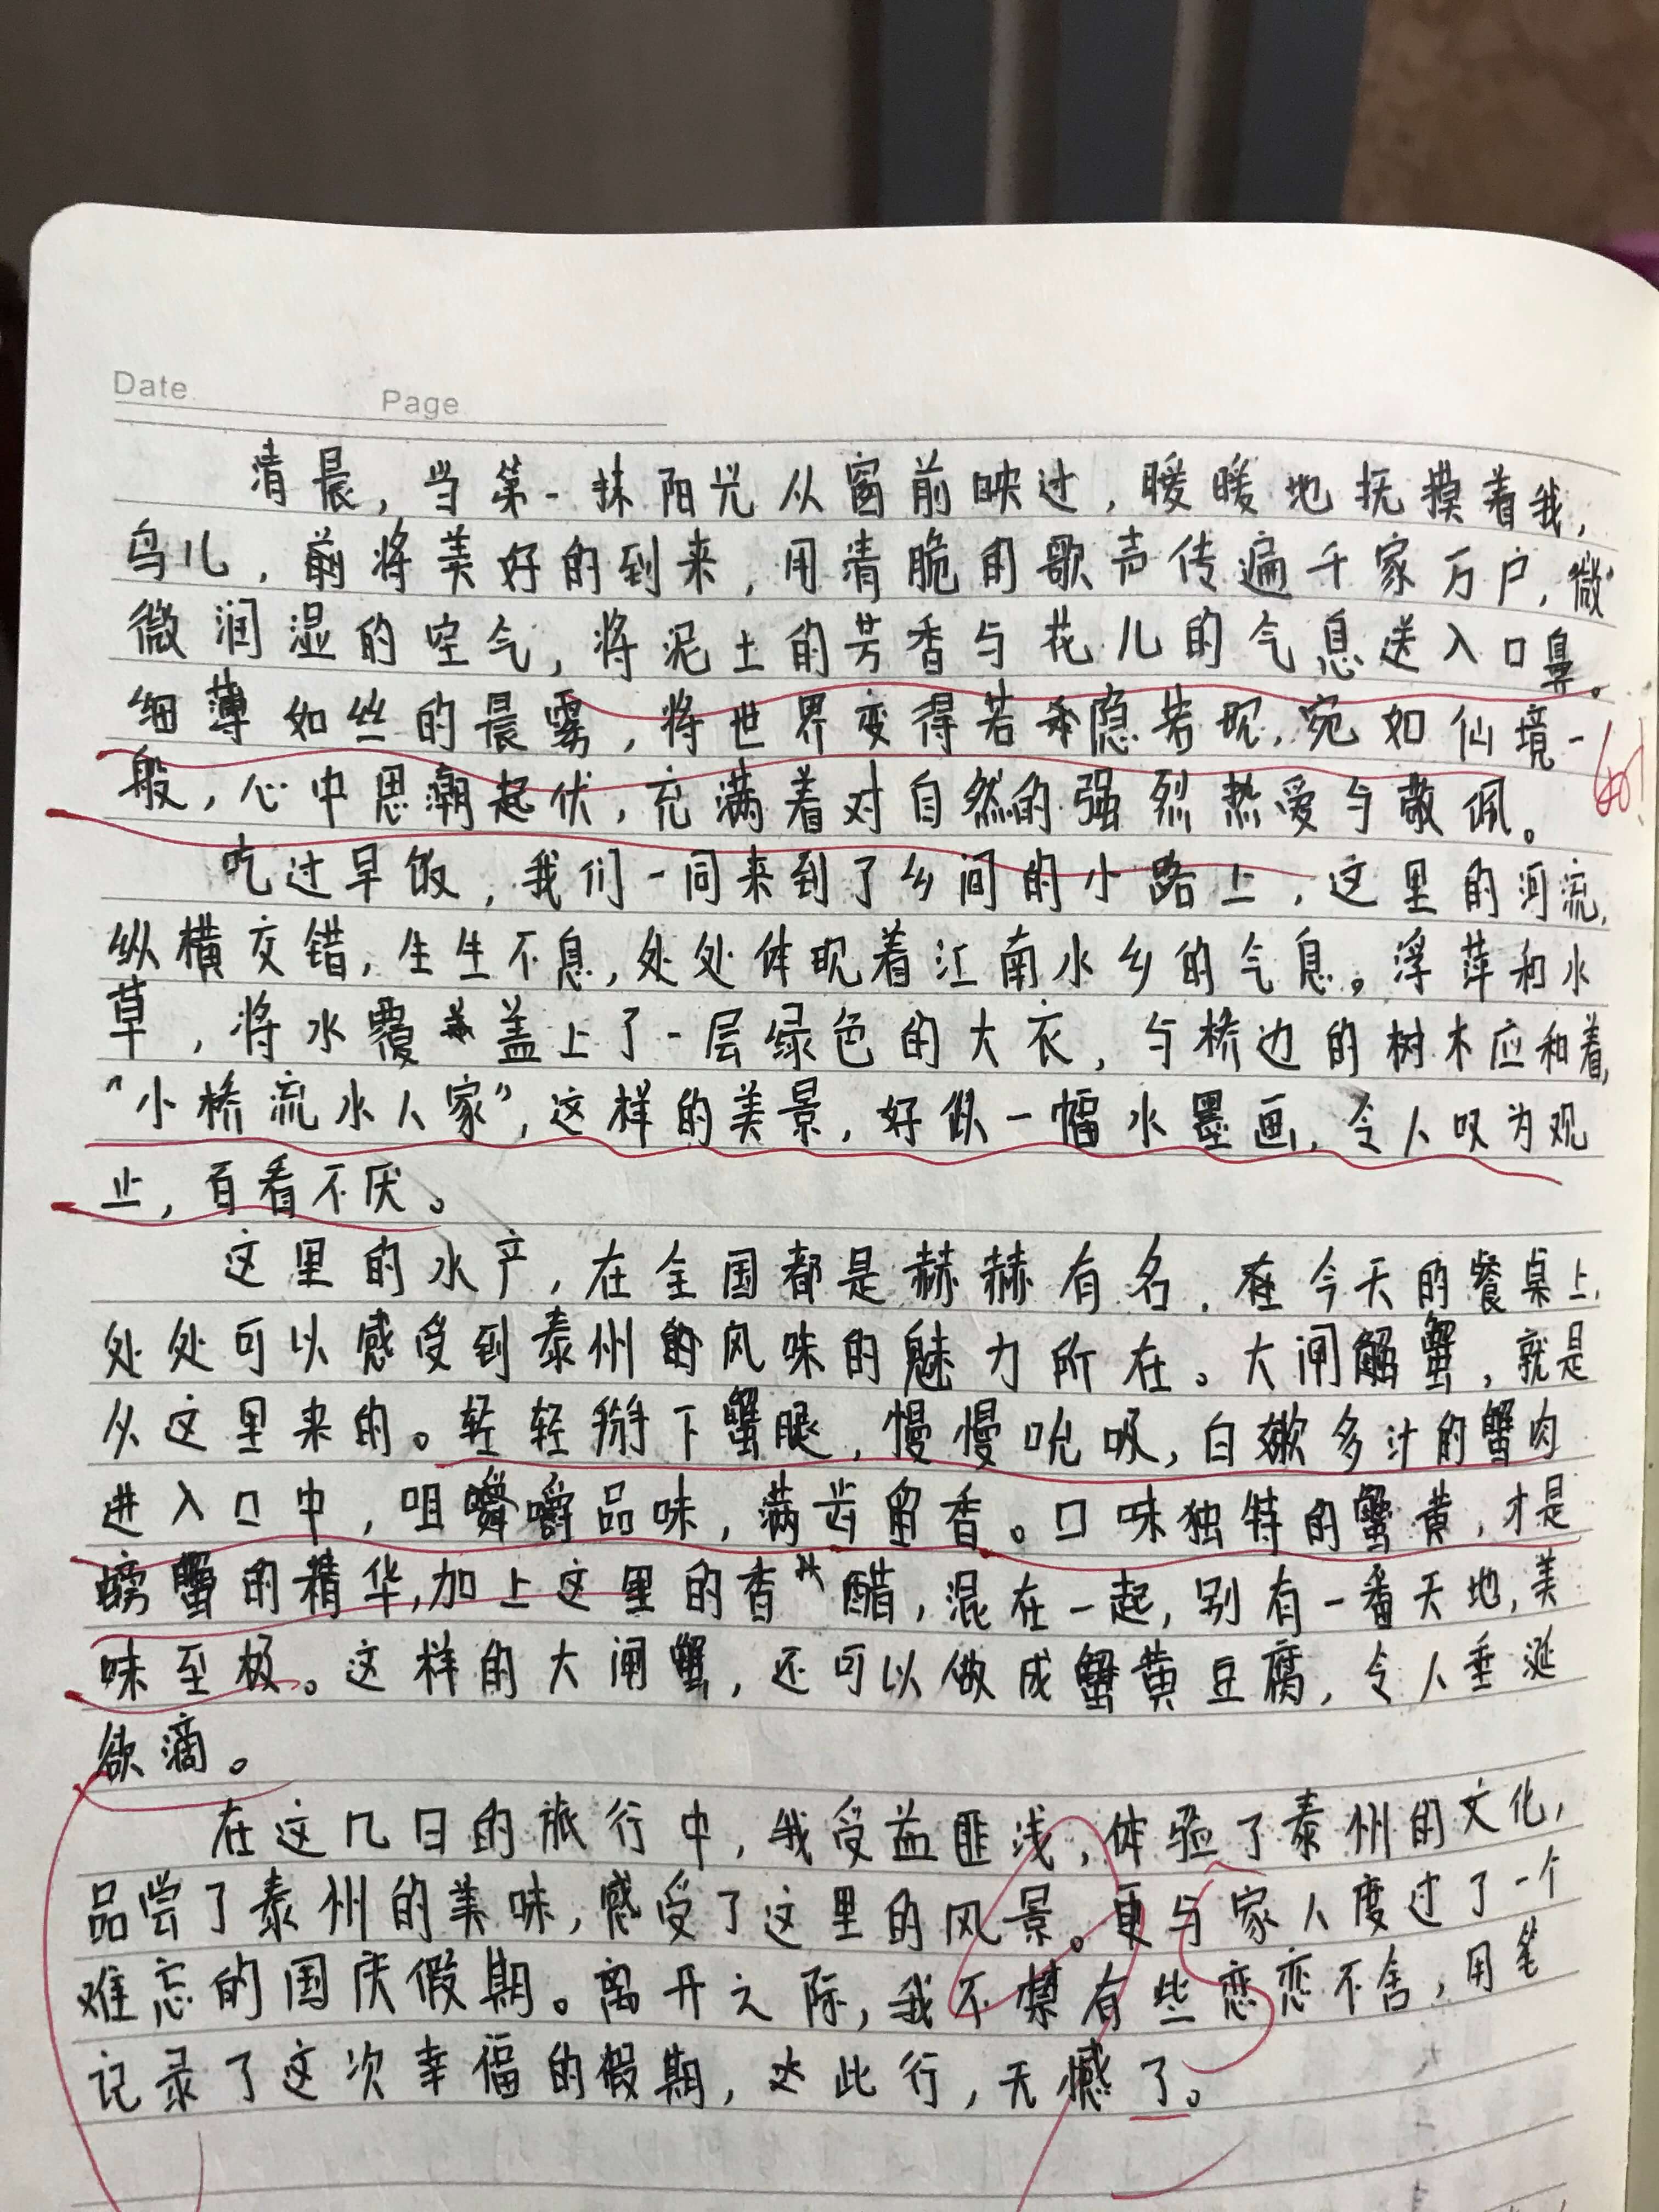 Date
Page
清晨，当第一抹阳光从窗前映过，暖暖地抚摸着我，
鸟儿，前将美好的到来，用清脆的歌声传遍千家万户，微
微润湿的空气，将泥土的芳香与花儿的气息送入口鼻。
细薄如丝的晨雾，将世界变得若隐若现，宛如仙境一
般，心中思潮起伏，充满着对自然的强烈热爱与敬佩。
吃过早饭，我们一同来到了乡间的小路上，这里的河流，
纵横交错，生生不息，处处体现着江南水乡的气息。浮萍和水
草，将水覆盖上了一层绿色的大衣，与桥边的树木应和着，
“小桥流水人家”，这样的美景，好似一幅水墨画，令人叹为观
止，百看不厌。
这里的水产，在全国都是赫赫有名，在今天的餐桌上，
处处可以感受到泰州的风味的魅力所在。大闸蟹，就是
从这里来的。轻轻掰下蟹腿，慢慢吮吸，白嫩多汁的蟹肉
进入口中，咀嚼品味，满齿留香。口味独特的蟹黄，才是
螃蟹的精华，加上这里的香醋，混在一起，别有一番天地，美
味至极。这样的大闸蟹，还可以做成蟹黄豆腐，令人垂涎
欲滴。
在这几日的旅行中，我受益匪浅，体验了泰州的文化，
品尝了泰州的美味，感受了这里的风景。更与家人度过了一个
难忘的国庆假期。离开之际，我不禁有些恋恋不舍，用笔
记录了这次幸福的假期，此行，无憾了。